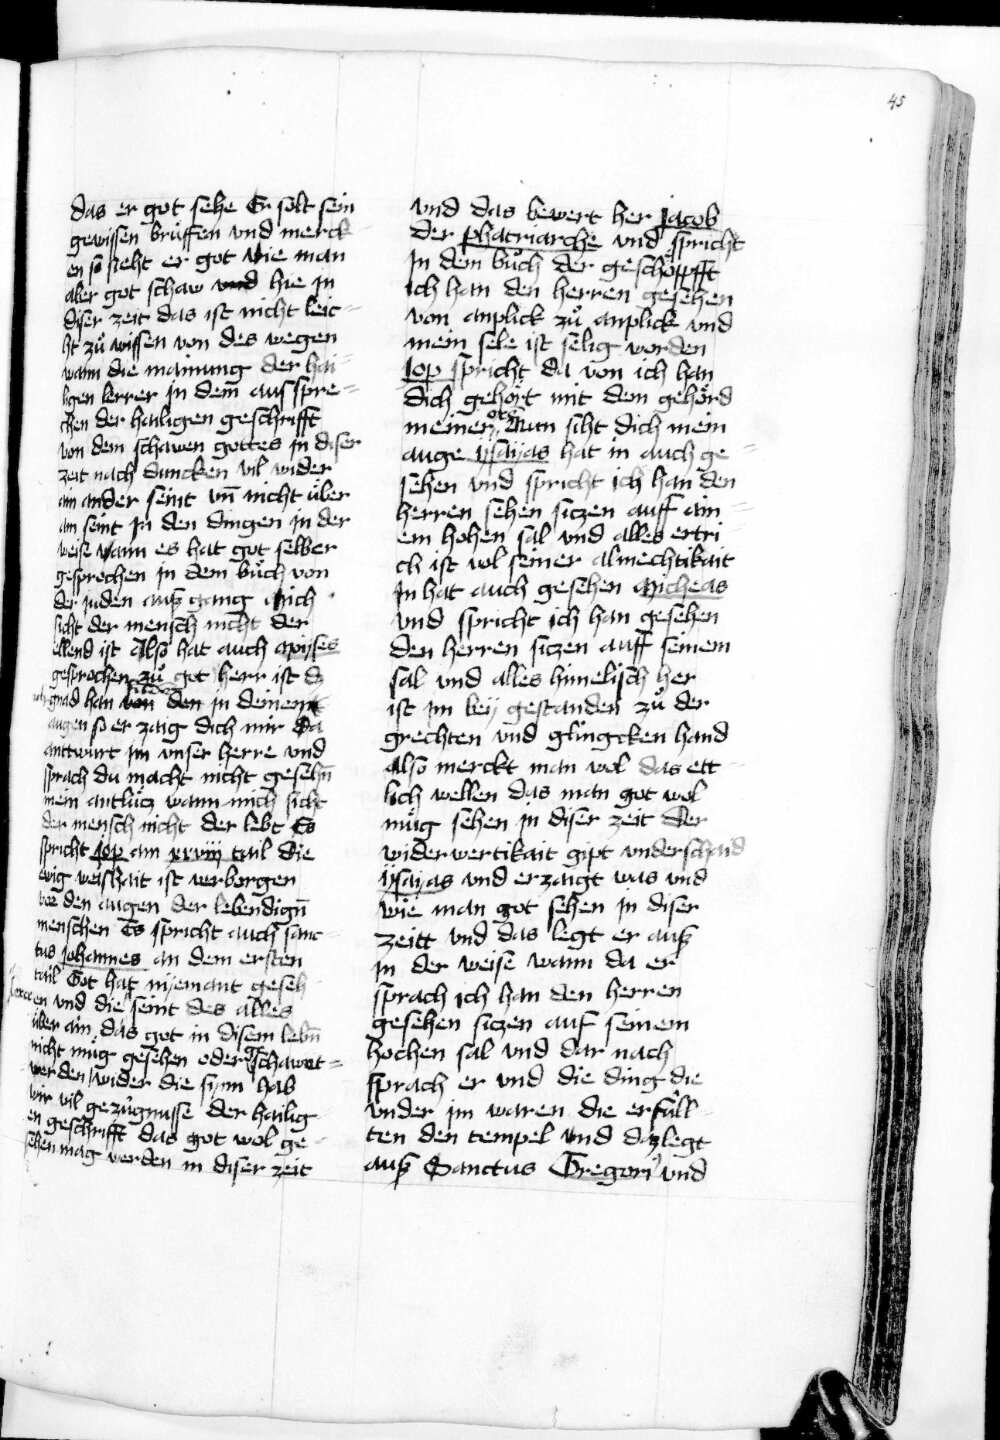 45
das er got sehe Er solt sein
gewissen brüffen vnd merck
en so sieht er got Wie man
aber got schaw vnd hie jn
diser zeit das ist nicht leic-
ht zů wissen von des wegen
wann die mainung der hai-
ligen lerrer in dem aus spre-
chen der hailigen geschrifft
von dem schawen gottes in diser
zeit nach duncken vil wider
ain ander seint vnd nicht über
ain seint jn den dingen in der
weise wann es hat got selber
gesprochen in dem bůch von
der juden auß gang Mich
sicht der mensch nicht der
ellend ist Also hat auch Moyses
gesprochen zů got herr ist das
gnad han von den in deinen
augen so er zaig dich mir Da
anttwurt im vnser herre vnd
sprach du macht nicht gesehn
mein antlücz wann mich sicht
der mensch nicht der lebt Es
spricht Jop am xxviij tail die
ewig weishait ist verborgen
vor den augen der lebendign
menschen Es spricht auch sanc-
tus Johannes an dem ersten
tail Got hat nyemant geseh-
en vnd die lerer seint des alles
über ain, das got in disem lebn
nicht müg gesehen oder geschawet
werden wider die synn hab
wir vil gezügnusse der hailig-
en geschrifft das got wol ge-
sehen mag werden in diser zeit
vnd das bewert her Jacob
der phatriarche vnd spricht
jn dem bůch der geschöppfft
ich han den herren gesehen
von anplick zů anplick vnd
mein sele ist selig worden
Jop spricht da von ich han
dich gehört mit dem gehörd
meiner orn Nun siht dich mein
auge ysayas hat in auch ge-
sehen vnd spricht ich han den
herren sehen siczen auff ain-
em hohen sal vnd alles ertri
ch ist vol seiner almechtikait
jn hat auch gesehen Micheas
vnd spricht ich han gesehen
den herren siczen auff seinem
sal vnd alles himelisch her
ist jm bey gestanden zů der
grechten vnd glingcken hand
also merckt man wol das ett-
lich wellen das man got wol
müg sehen in diser zeit der
widerwertikait gipt vnderschaid
ysayas vnd erzaigt was vnd
wie man got sehen in diser
zeitt vnd das legt er auß
jn der weise wann da er
sprach ich han den herren
gesehen siczen auf seinem
hochen sal vnd dar nach
sprach er vnd die ding die
vnder jm waren die erfüll-
ten den tempel vnd daz legt
auß Sanctus Gregori9 vnd